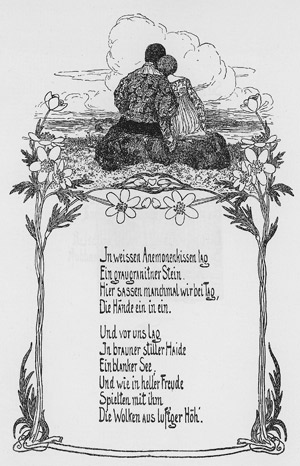 In weissen Anemonenkissen lag
Ein graugranitner Stein.
Hier sassen manchmal wir bei Tag,
Die Hände ein in ein.
Und vor uns lag
In brauner stiller Haide
Ein blanker See,
Und wie in heller Freude
Spielten mit ihm
Die Wolken aus luftger Höh'.